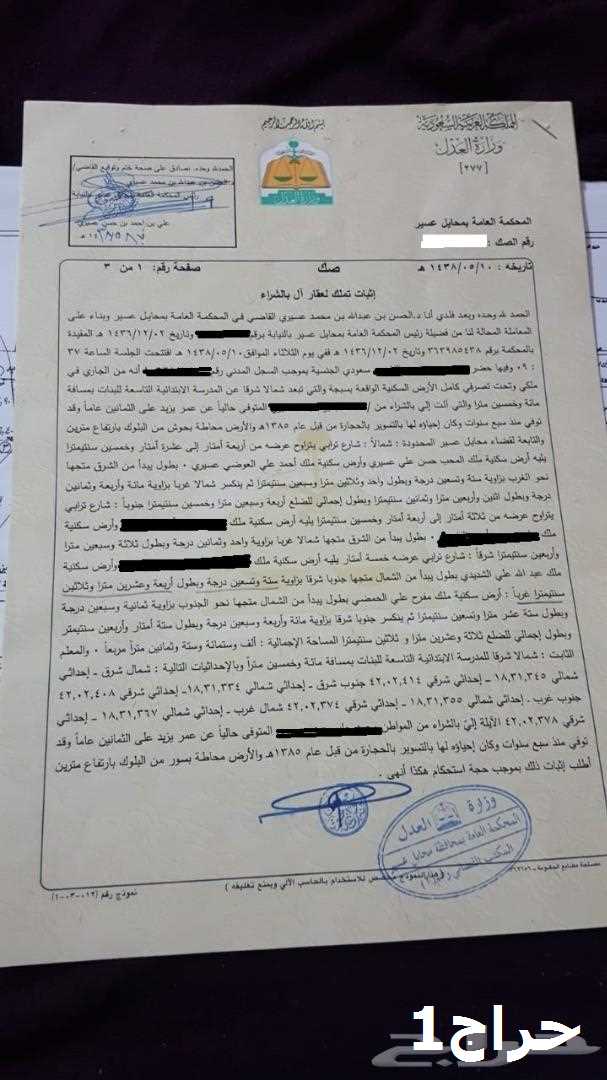 بسم الله الرحمن الرحيم
المملكة العربية السعودية
وزارة العدل
[٢٧٧]
وزارة العدل
الحمد لله وحده، نصادق على صحة ختم وتوقيع القاضي/
الحسن بن عبدالله بن محمد عسيري
علي بن أحمد بن حسن عسيري
المحكمة العامة بمحايل عسير
رقم الصك :
تاريخه : ١٤٣٨/٠٥/١٠ هـ صك صفحة رقم: ١ من ٣
إثبات تملك لعقار آل بالشراء
الحمد لله وحده وبعد فلدي أنا د.الحسن بن عبدالله بن محمد عسيري القاضي في المحكمة العامة بمحايل عسير وبناء على
المعاملة المحالة لنا من فضيلة رئيس المحكمة العامة بمحايل عسير بالنيابة برقم وتاريخ ١٤٣٦/١٢/٠٢ هـ المقيدة
بالمحكمة برقم ٣٦٣٩٨٥٤٣٨ وتاريخ ١٤٣٦/١٢/٠٢ هـ ففي يوم الثلاثاء الموافق ١٤٣٨/٠٥/١٠ هـ افتتحت الجلسة الساعة ٣٧
: ٠٩ وفيها حضر سعودي الجنسية بموجب السجل المدني رقم أنه من الجاري في
ملكي وتحت تصرفي كامل الأرض السكنية الواقعة بسيجة والتي تبعد شمالا شرقا عن المدرسة الابتدائية التاسعة للبنات بمسافة
مائة وخمسين مترا والتي آلت إلي بالشراء من / المتوفى حاليا عن عمر يزيد على الثمانين عاما وقد
توفي منذ سبع سنوات وكان إحياؤه لها بالتسوير بالحجارة من قبل عام ١٣٨٥هـ والأرض محاطة بحوش من البلوك بارتفاع مترين
والتابعة لقضاء محايل عسير المحدودة : شمالاً : شارع ترابي يتراوح عرضه من أربعة أمتار إلى عشرة أمتار وخمسين سنتيمترا
يليه أرض سكنية ملك المحب حسن علي عسيري وأرض سكنية ملك أحمد علي العوضي عسيري ، بطول يبدأ من الشرق متجها
نحو الغرب بزاوية ستة وتسعين درجة وبطول واحد وثلاثين مترا وسبعين سنتيمترا ثم ينكسر شمالا غربا بزاوية مائة وأربعة وثمانين
درجة وبطول اثنين وأربعين مترا وثمانين سنتيمترا وبطول إجمالي للضلع أربعة وسبعين مترا وخمسين سنتيمترا جنوباً : شارع ترابي
يتراوح عرضه من ثلاثة أمتار إلى أربعة أمتار وخمسين سنتيمترا يليه أرض سكنية ملك وأرض سكنية
ملك ، بطول يبدأ من الشرق متجها شمالا غربا بزاوية واحد وثمانين درجة وبطول ثلاثة وسبعين مترا
وأربعين سنتيمترا شرقاً : شارع ترابي عرضه خمسة أمتار يليه أرض سكنية ملك وأرض سكنية
ملك عبد الله علي الشديدي بطول يبدأ من الشمال متجها جنوبا شرقا بزاوية ستة وتسعين درجة وبطول أربعة وعشرين مترا وثلاثين
سنتيمترا غرباً : أرض سكنية ملك مفرح علي الحمضي بطول يبدأ من الشمال متجها نحو الجنوب بزاوية ثمانية وسبعين درجة
وبطول ستة عشر مترا وتسعين سنتيمترا ثم ينكسر جنوبا شرقا بزاوية مائة وأربعة وسبعين درجة وبطول ستة أمتار وأربعين سنتيمتر
وبطول إجمالي للضلع ثلاثة وعشرين مترا و ثلاثين سنتيمترا المساحة الإجمالية : ألف وستمائة وستة وثمانين متراً مربعاً ، والمعلم
الثابت : شمالا شرقا للمدرسة الابتدائية التاسعة للبنات بمسافة مائة وخمسين متراً وبالإحداثيات التالية : شمال شرق - إحداثي
شمالي ١٨,٣١,٣٤٥ - إحداثي شرقي ٤٢,٠٢,٤١٤ جنوب شرق - إحداثي شمالي ١٨,٣١,٣٣٤ - إحداثي شرقي ٤٢,٠٢,٤٠٨
جنوب غرب - إحداثي شمالي ١٨,٣١,٣٥٥ - إحداثي شرقي ٤٢,٠٢,٣٧٤ شمال غرب - إحداثي شمالي ١٨,٣١,٣٦٧ - إحداثي
شرقي ٤٢,٠٢,٣٧٨ الآيلة إليّ بالشراء من المواطن المتوفى حاليا عن عمر يزيد على الثمانين عاماً وقد
توفي منذ سبع سنوات وكان إحياؤه لها بالتسوير بالحجارة من قبل عام ١٣٨٥هـ والأرض محاطة بسور من البلوك بارتفاع مترين
أطلب إثبات ذلك بموجب حجة استحكام هكذا أنهى .
وزارة العدل
المحكمة العامة بمحافظة محايل عسير
المكتب القضائي
(هذا النموذج مخصص للاستخدام بالحاسب الآلي ويمنع تغليفه)
نموذج رقم (١٢-٠٣-١)
حراج1